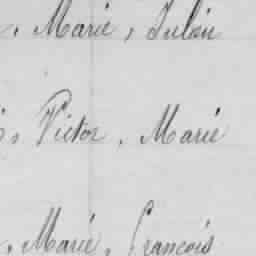 , Marie, Julien
, Victor, Marie
, Marie, François